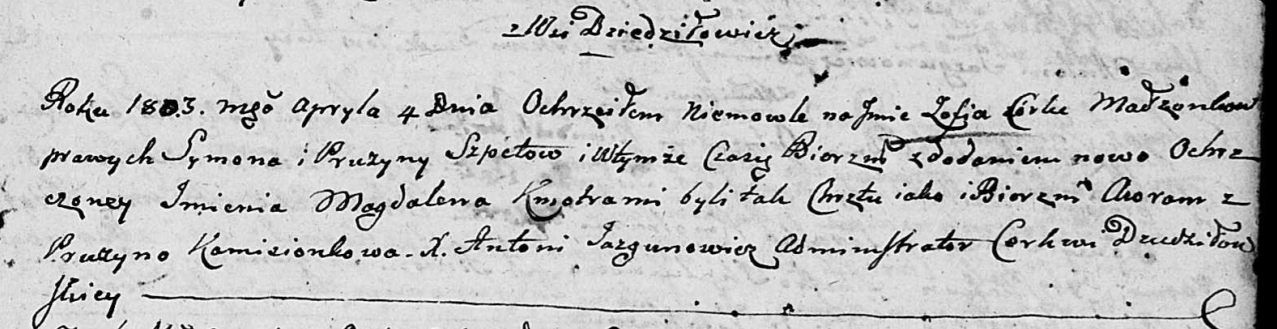 z Wsi Dziedziłowicz
Roku 1803. mgo Apryla 4 Dnia Ochrzciłem Niemowle na Jmie Zofia Corku Małżonkow
prawych Symona i Pruzyny Szpetow i Wtymże Czasię Biorzm zdodaniem nowo Ochrz
czoney Jmienia Magdalena Kmotrami byli tak Chrztu iako i Biorzm Awram z
Pruzyno Kamizionkowa. X. Antoni Jazgunowicz Administrator Cerkwi Dziedziłow
skiey